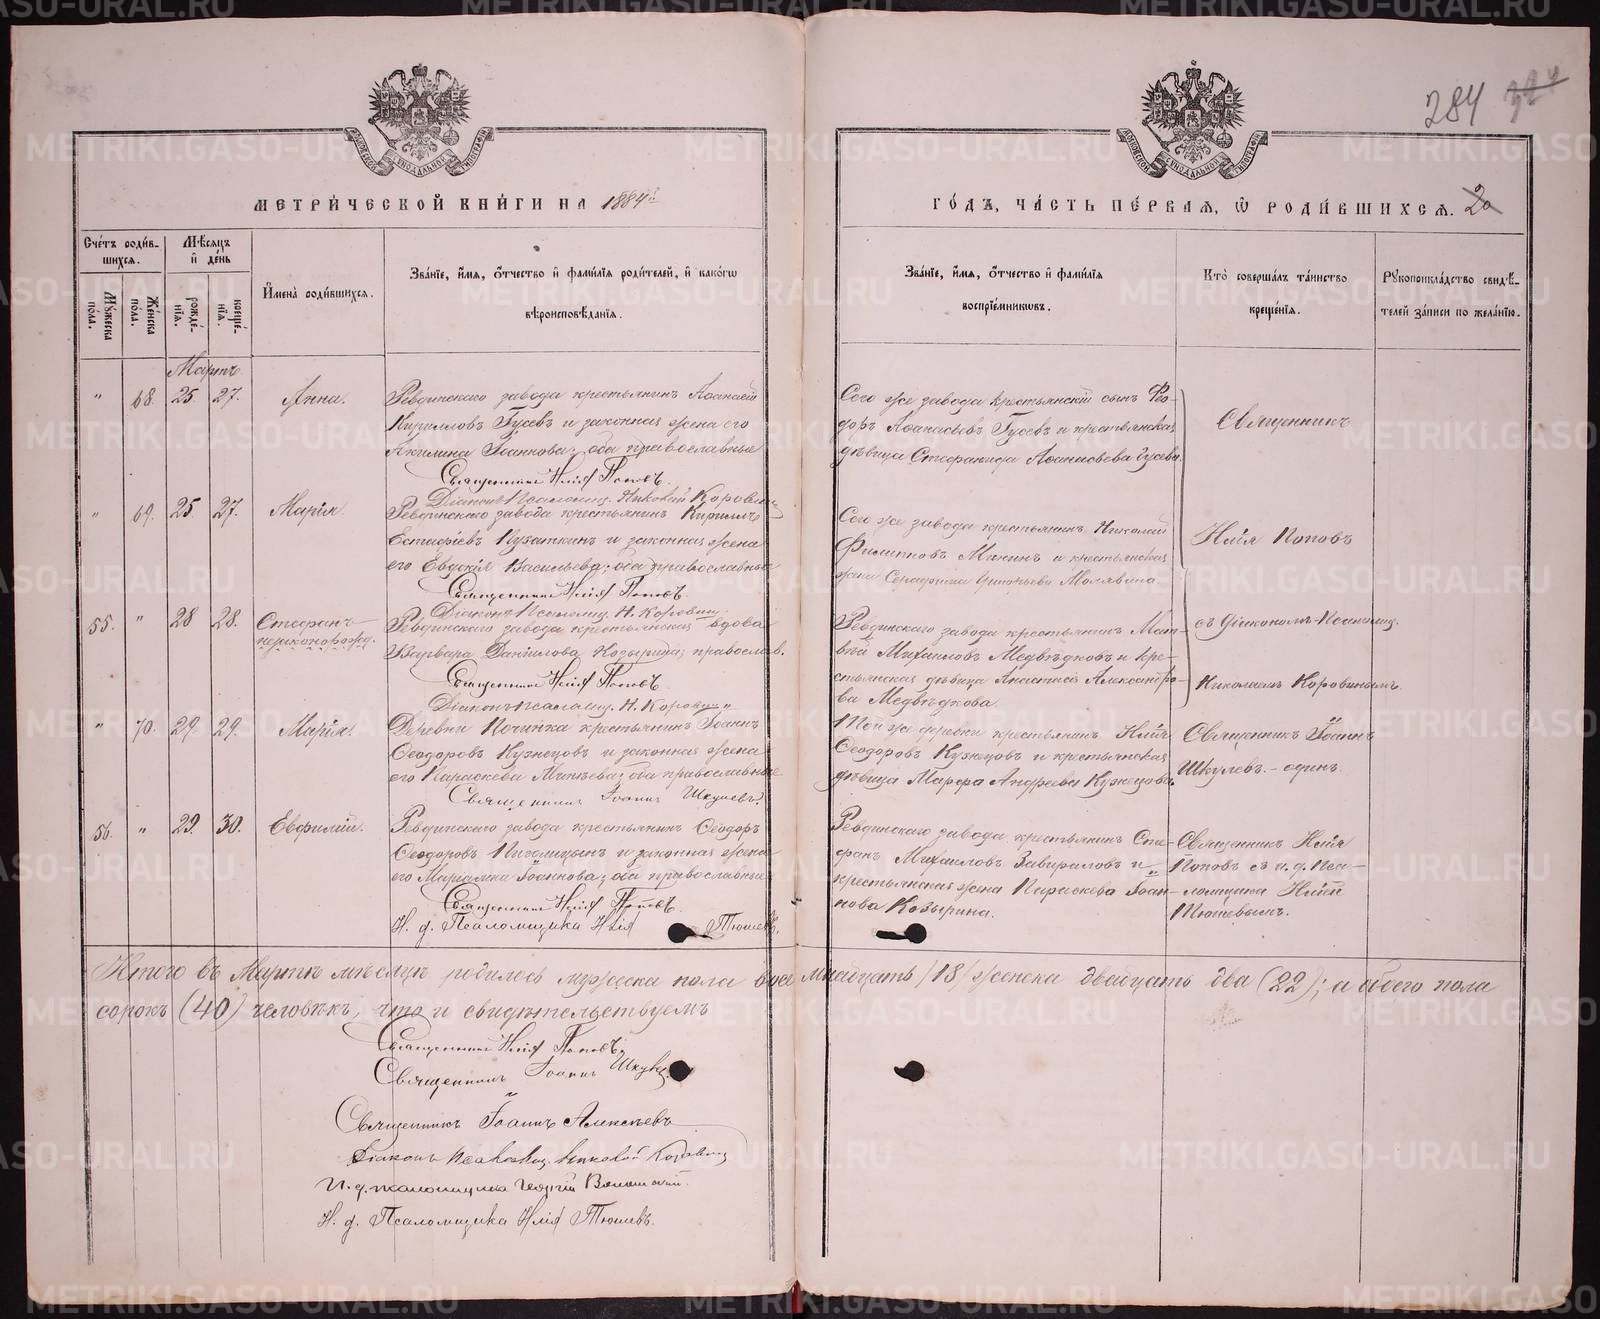 284
МЕТРИ́ЧЕСКОЙ КНИ́ГИ НА 1884й
ГО́ДЪ, ЧА́СТЬ ПЕ́РВАЯ, Ѡ РОДИ́ВШИХСЯ. 20
Сче́тъ роди́в-
шихся.
Му́жеска пола.
Же́нска пола.
Мѣ́сяцъ и де́нь
рожде́нія.
креще́нія.
Имена̀ роди́вшихся.
Зва́ніе, и́мя, о́тчество и фами́лія роди́телей, и како́гѡ
вѣроисповѣ́данія.
Зва́ніе, и́мя, о́тчество и фами́лія
воспріе́мникѡвъ.
Кто̀ соверша́лъ та́инство
креще́нія.
Рукоприкла́дство свидѣ́-
телей за́писи по жела́нію.
Мартъ
" 68. 25 27. Анна.
Ревдинскаго завода крестьянинъ Аѳанасій
Кирилловъ Гусевъ и законная жена его
Акилина Іоаннова; оба православные
Священникъ Илія Поповъ.
Діаконъ-Псаломщ. Николай Коровинъ
Сего же завода крестьянскій сынъ Ѳео-
доръ Аѳанасьевъ Гусевъ и крестьянская
дѣвица Стефанида Аѳанасьева Гусева.
Священникъ
" 69. 25 27. Марія.
Ревдинскаго завода крестьянинъ Кириллъ
Евстафіевъ Кухаткинъ и законная жена
его Евдокія Васильева; оба православные
Священникъ Илія Поповъ.
Діаконъ-Псаломщ. Н. Коровинъ.
Сего же завода крестьянинъ Николай
Филипповъ Мининъ и крестьянская
жена Серафима Григорьева Молявина
Илія Поповъ
55. " 28 28. Стефанъ
незаконорожд.
Ревдинскаго завода крестьянская вдова
Варвара Даніилова Козырина; православ.
Священникъ Илія Поповъ.
Діаконъ-псаломщ. Н. Коровинъ
Ревдинскаго завода крестьянинъ Мат-
вѣй Михаиловъ Медвѣдковъ и кре-
стьянская дѣвица Анастасія Александро-
ва Медвѣдкова.
съ діакономъ-псаломщ.
Николаемъ Коровинымъ.
" 70. 29. 29. Марія.
Деревни Починка крестьянинъ Іоаннъ
Ѳеодоровъ Кузнецовъ и законная жена
его Параскева Минѣева; оба православные
Священникъ Іоаннъ Шкулевъ.
Той же деревни крестьянинъ Илія
Ѳеодоровъ Кузнецовъ и крестьянская
дѣвица Марфа Андреева Кузнецова.
Священникъ Іоаннъ
Шкулевъ. - одинъ.
56. " 29. 30. Евфимій.
Ревдинскаго завода крестьянинъ Ѳеодоръ
Ѳеодоровъ Пиголицынъ и законная жена
его Маріамна Іоаннова; оба православные
Священникъ Илія Поповъ.
И. д. Псаломщика Илія Тюшевъ.
Ревдинскаго завода крестьянинъ Сте-
фанъ Михаиловъ Завираловъ и
крестьянская жена Параскева Іоан-
нова Козырина.
Священникъ Илія
Поповъ съ и. д. Пса-
ломщика Иліей
Тюшевымъ.
Итого въ Мартѣ мѣсяцѣ родилось мужеска пола восемнадцать /18/ женска двадцать два (22); а обоего пола
сорокъ (40) человѣкъ, что и свидѣтельствуемъ
Священникъ Илія Поповъ.
Священникъ Іоаннъ Шкулевъ.
Священникъ Іоаннъ Алексѣевъ
Діаконъ-Псаломщ. Николай Коровинъ
И. д. псаломщика Георгій
И. д. Псаломщика Илія Тюшевъ.